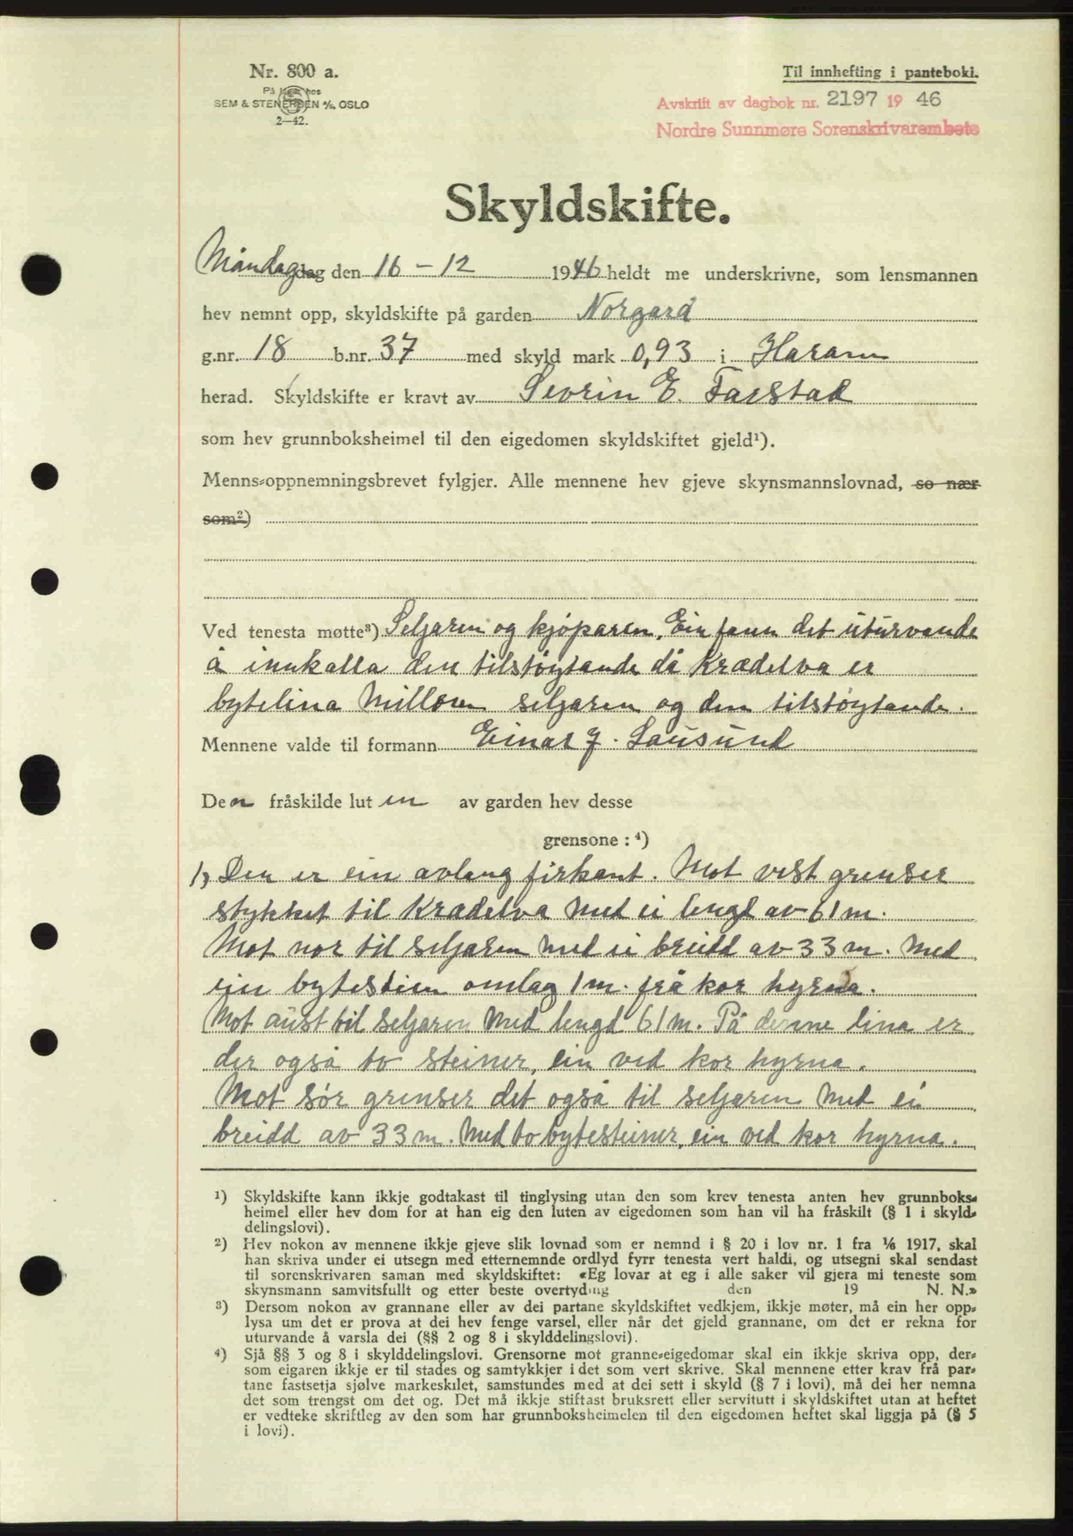 Nr. 800 a.
På lager hos
SEM & STENERSEN A/S, OSLO
2—42.
Til innhefting i panteboki.
Avskrift av dagbok nr. 2197 19 46
Nordre Sunnmøre Sorenskrivarembete
Skyldskifte.
Måndag dag den 16 - 12 1946 heldt me underskrivne, som lensmannen
hev nemnt opp, skyldskifte på garden Norgard
g.nr. 18 b.nr. 37 med skyld mark 0,93 i Haram
herad. Skyldskifte er kravt av Sevrin E. Farstad
som hev grunnboksheimel til den eigedomen skyldskiftet gjeld¹).
Menns-oppnemningsbrevet fylgjer. Alle mennene hev gjeve skynsmannslovnad, so nær
som²)
Ved tenesta møtte³) Seljaren og kjøparen. Ein fann det uturvande
å innkalla den tilstøytande då Krædelva er
bytelina millom seljaren og den tilstøytande.
Mennene valde til formann Einar J. Sausund
Den fråskilde luten av garden hev desse
grensone : ⁴)
1) Den er ein avlang firkant. Mot vest grenser
stykket til Krædelva med ei lengd av 61 m.
Mot nor til seljaren med ei breidd av 33 m. Med
ein bytestein omlag 1 m. frå kor hyrna.
Mot aust til seljaren med lengd 61 m. På denne lina er
der også to steiner, ein ved kor hyrna.
Mot sør grenser det også til seljaren med ei
breidd av 33 m. Med to bytesteiner, ein ved kor hyrna.
¹) Skyldskifte kann ikkje godtakast til tinglysing utan den som krev tenesta anten hev grunnboks-
heimel eller hev dom for at han eig den luten av eigedomen som han vil ha fråskilt (§ 1 i skyld-
delingslovi).
²) Hev nokon av mennene ikkje gjeve slik lovnad som er nemnd i § 20 i lov nr. 1 fra ⅛ 1917, skal
han skriva under ei utsegn med etternemnde ordlyd fyrr tenesta vert haldi, og utsegni skal sendast
til sorenskrivaren saman med skyldskiftet: «Eg lovar at eg i alle saker vil gjera mi teneste som
skynsmann samvitsfullt og etter beste overtyding den 19 N. N.»
³) Dersom nokon av grannane eller av dei partane skyldskiftet vedkjem, ikkje møter, må ein her opp-
lysa um det er prova at dei hev fenge varsel, eller når det gjeld grannane, om det er rekna for
uturvande å varsla dei (§§ 2 og 8 i skylddelingslovi).
⁴) Sjå §§ 3 og 8 i skylddelingslovi. Grensorne mot granne-eigedomar skal ein ikkje skriva opp, der-
som eigaren ikkje er til stades og samtykkjer i det som vert skrive. Skal mennene etter krav frå par-
tane fastsetja sjølve markeskilet, samstundes med at dei sett i skyld (§ 7 i lovi), må dei her nemna
det som trengst om det og. Det må ikkje stiftast bruksrett eller servitutt i skyldskiftet utan at heftet
er vedteke skriftleg av den som har grunnboksheimelen til den eigedomen heftet skal liggja på (§ 5
i lovi).